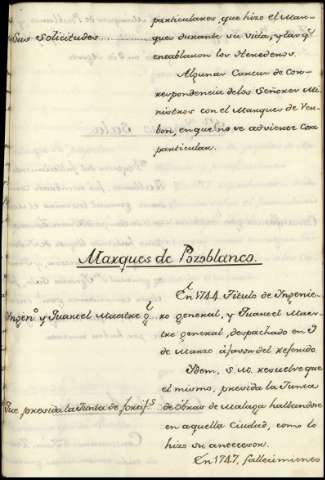 particulares, que hizo el Mar-
Sus Solicitudes que durante su vida, y las q.e
entablaron los Herederos.
Algunas Cartas de Cor-
respondencia de los Señores Mi-
nistros con el Marques de Ver-
bon, en que no se advierte Cosa
particular.
Marques de Pozoblanco.
En 1744. Titulo de Ingenie-
Ingen.o y Quartel Maestre g.l ro general, y Quartel Maes-
tre general, despachado en
de Marzo à favor del referido.
Idem, S. M. resuelve que
el mismo, presida la Junta
Que presida la Junta de fortif.s de Obras de Malaga hallandose
en aquella Ciudad, como lo
hizo su antecesor.
En 1747, fallecimiento